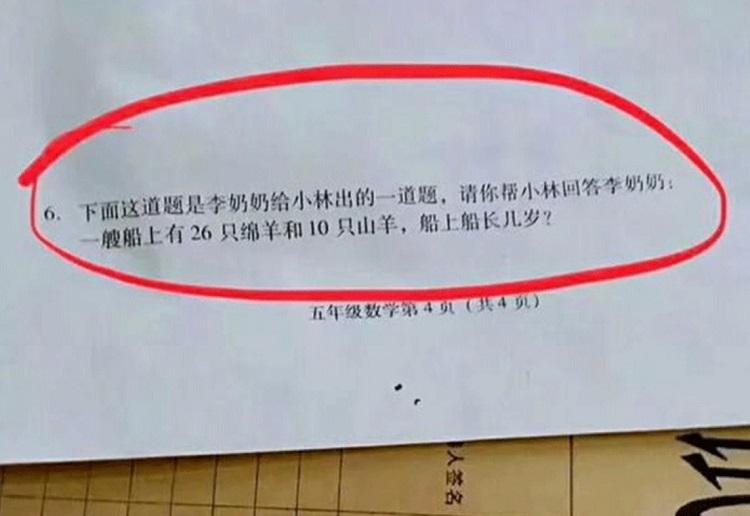 6. 下面这道题是李奶奶给小林出的一道题，请你帮小林回答李奶奶：
一艘船上有 26 只绵羊和 10 只山羊，船上船长几岁？
五年级数学第 4 页（共 4 页）
人签名